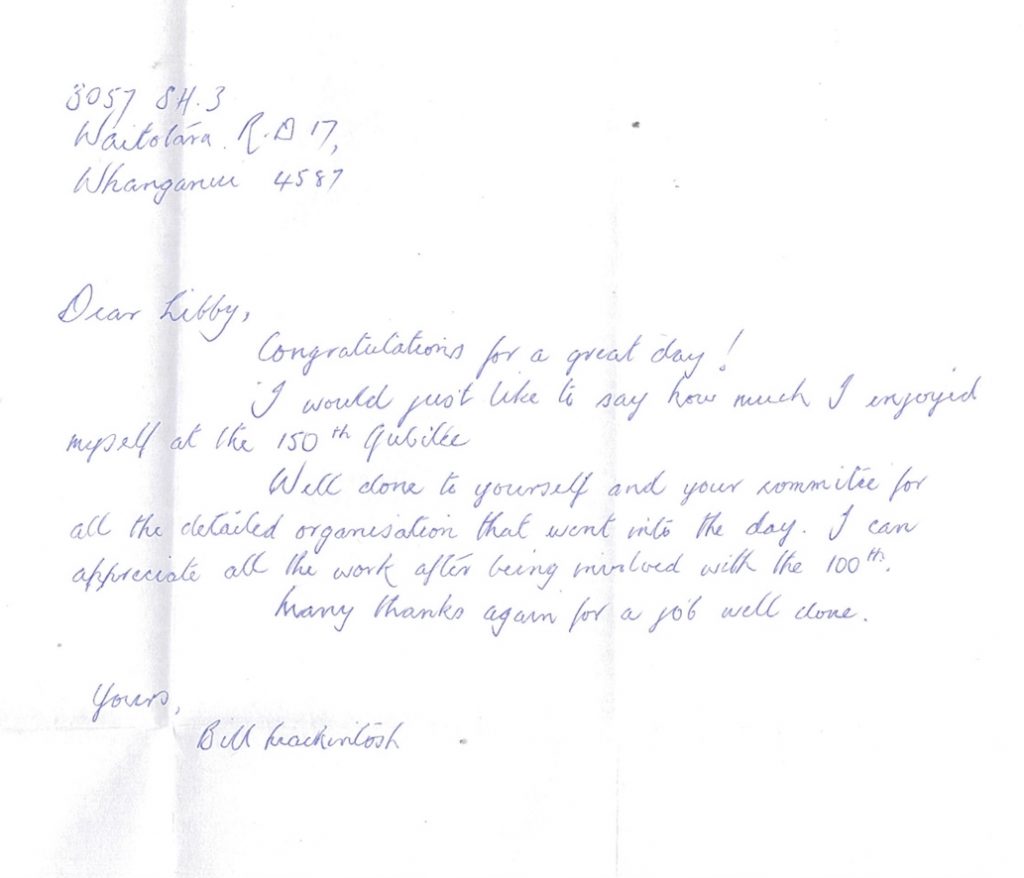 3057 SH.3
Waitotara R.D 17,
Whanganui 4587
Dear Libby,
Congratulations for a great day!
I would just like to say how much I enjoyed
myself at the 150th Jubilee
Well done to yourself and your commitee for
all the detailed organisation that went into the day. I can
appreciate all the work after being involved with the 100th.
Many thanks again for a job well done.
Yours,
Bill Mackintosh